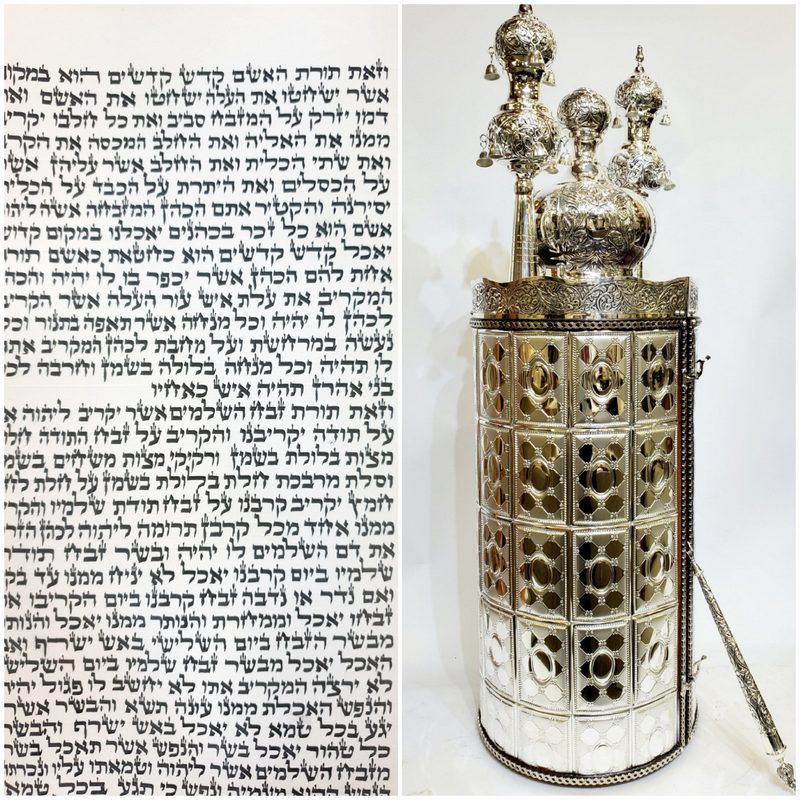 וזאת תורת האשם קדש קדשים הוא במקום
אשר ישחטו את העלה ישחטו את האשם ואת
דמו יזרק על המזבח סביב ואת כל חלבו יקריב
ממנו את האליה ואת החלב המכסה את הקרב
ואת שתי הכלית ואת החלב אשר עליהן אשר
על הכסלים ואת היתרת על הכבד על הכלית
יסירנה והקטיר אתם הכהן המזבחה אשה ליהוה
אשם הוא כל זכר בכהנים יאכלנו במקום קדוש
יאכל קדש קדשים הוא כחטאת כאשם תורה
אחת להם הכהן אשר יכפר בו לו יהיה והכהן
המקריב את עלת איש עור העלה אשר הקריב
לכהן לו יהיה וכל מנחה אשר תאפה בתנור וכל
נעשה במרחשת ועל מחבת לכהן המקריב אתה
לו תהיה וכל מנחה בלולה בשמן וחרבה לכל
בני אהרן תהיה איש כאחיו
וזאת תורת זבח השלמים אשר יקריב ליהוה א
על תודה יקריבנו והקריב על זבח התודה חלות
מצות בלולת בשמן ורקיקי מצות משחים בשמן
וסלת מרבכת חלת בלולת בשמן על חלת לחם
חמץ יקריב קרבנו על זבח תודת שלמיו והקריב
ממנו אחד מכל קרבן תרומה ליהוה לכהן הזרק
את דם השלמים לו יהיה ובשר זבח תודת
שלמיו ביום קרבנו יאכל לא יניח ממנו עד בקר
ואם נדר או נדבה זבח קרבנו ביום הקריבו א
זבחו יאכל וממחרת והנותר ממנו יאכל והנותר
מבשר הזבח ביום השלישי באש ישרף ואם
האכל יאכל מבשר זבח שלמיו ביום השלישי
לא ירצה המקריב אתו לא יחשב לו פגול יהיה
והנפש האכלת ממנו עונה תשא והבשר אשר
יגע בכל טמא לא יאכל באש ישרף והבשר
כל טהור יאכל בשר והנפש אשר תאכל בשר
מזבח השלמים אשר ליהוה וטמאתו עליו ונכרתה
הנפש ההוא מעמיה ונפש כי תגע בכל טמא